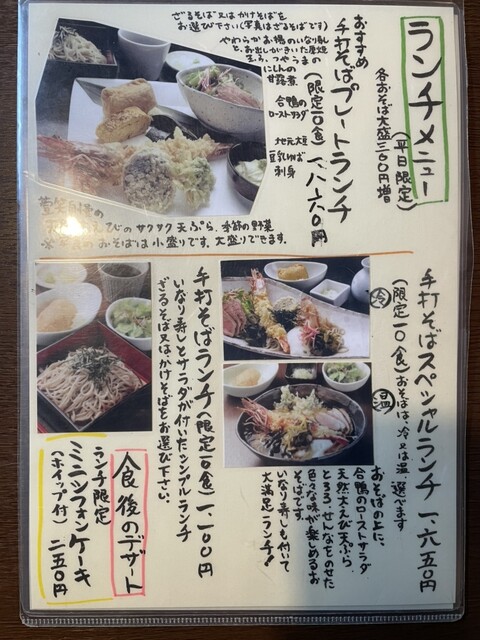 ランチメニュー
(平日限定)
各おそば大盛三六〇円増
おすすめ
手打そばプレートランチ
(限定一〇食) 一、八六〇円
ざるそば又はかけそばを
お選び下さい(写真はざるそばです)
やわらかお揚のいなり寿し
つやうまの
にしんの
甘露煮
合鴨の
ローストサラダ
地元大豆
豆乳ゆば
刺身
えびのサクサク天ぷら、季節の野菜
のおそばは小盛りです。大盛りできます。
手打そばスペシャルランチ 一、六五〇円
(限定一〇食) おそばは、冷又は温、選べます
冷
温
おそばの上に、
合鴨のローストサラダ
天然大えび天ぷら
とろろ、ぜんなをのせた
色々な味が楽しめるお
そばです。
いなり寿しも付いて
大満足ランチ!
手打そばランチ(限定一〇食) 一、一〇〇円
いなり寿しとサラダが付いたシンプルランチ
ざるそば又は、かけそばをお選び下さい。
食後のデザート
ランチ限定
ミニシフォンケーキ
(ホイップ付) 二五〇円